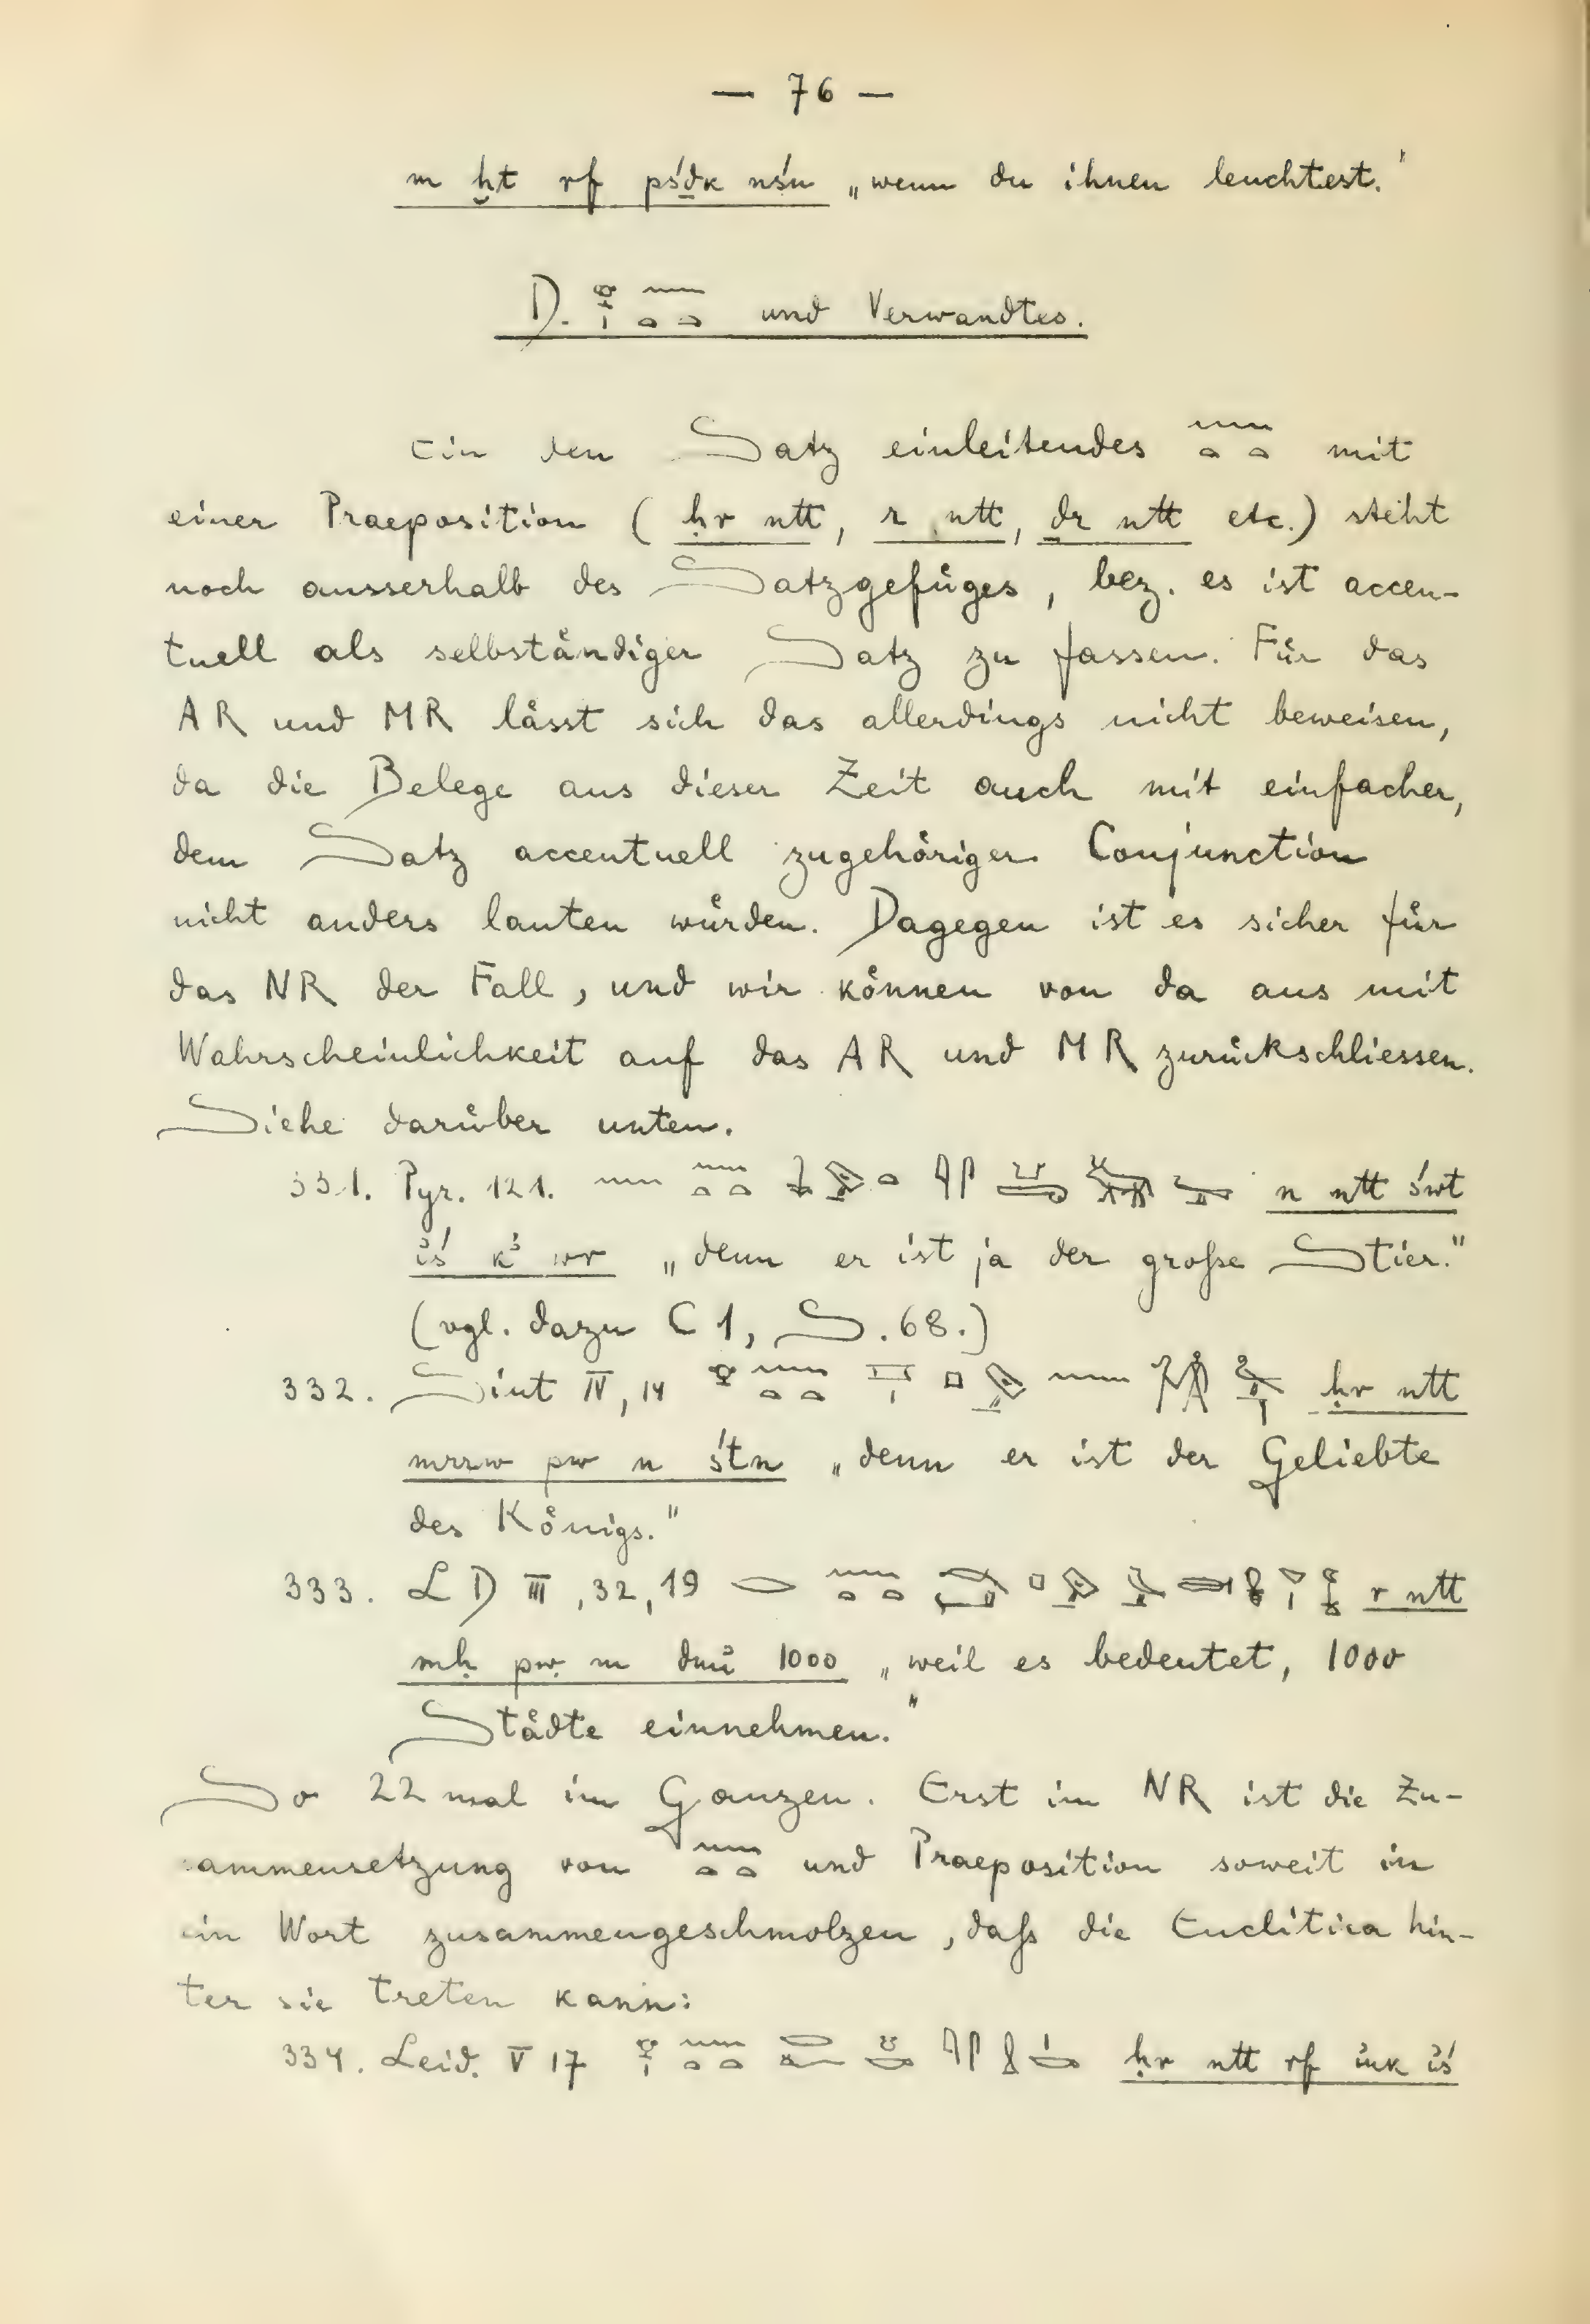 — 76 —
m ḫt rf pśḏk nśn „wenn du ihnen leuchtest."
D. 𓁷𓏤 𓈖𓏏𓏏 und Verwandtes.
Ein den Satz einleitendes 𓈖𓏏𓏏 mit
einer Praeposition (ḥr ntt, r ntt, ḏr ntt etc.) steht
noch ausserhalb des Satzgefüges, bez. es ist accen-
tuell als selbständiger Satz zu fassen. Für das
AR und MR lässt sich das allerdings nicht beweisen,
da die Belege aus dieser Zeit auch mit einfacher,
dem Satz accentuell zugehöriger Conjunction
nicht anders lauten würden. Dagegen ist es sicher für
das NR der Fall, und wir können von da aus mit
Wahrscheinlichkeit auf das AR und MR zurückschliessen.
Siehe darüber unten.
331. Pyr. 121. 𓈖 𓈖𓏏𓏏 n ntt śwt
ỉś kꜣ wr „denn er ist ja der große Stier."
(vgl. dazu C 1, S. 68.)
332. Siut IV, 14 𓁷 𓈖𓏏𓏏 ḥr ntt
mrrw pw n śtn „denn er ist der Geliebte
des Königs."
333. LD III, 32, 19 𓂋 𓈖𓏏𓏏 r ntt
mḥ pw m dmỉ 1000 „weil es bedeutet, 1000
Städte einnehmen."
So 22 mal im Ganzen. Erst im NR ist die Zu-
sammensetzung von 𓈖𓏏𓏏 und Praeposition soweit in
ein Wort zusammengeschmolzen, daß die Enclitica hin-
ter sie treten kann:
334. Leid. V 17 𓁷𓏤 𓈖𓏏𓏏 𓂋𓆑 ḥr ntt rf ỉnk ỉś